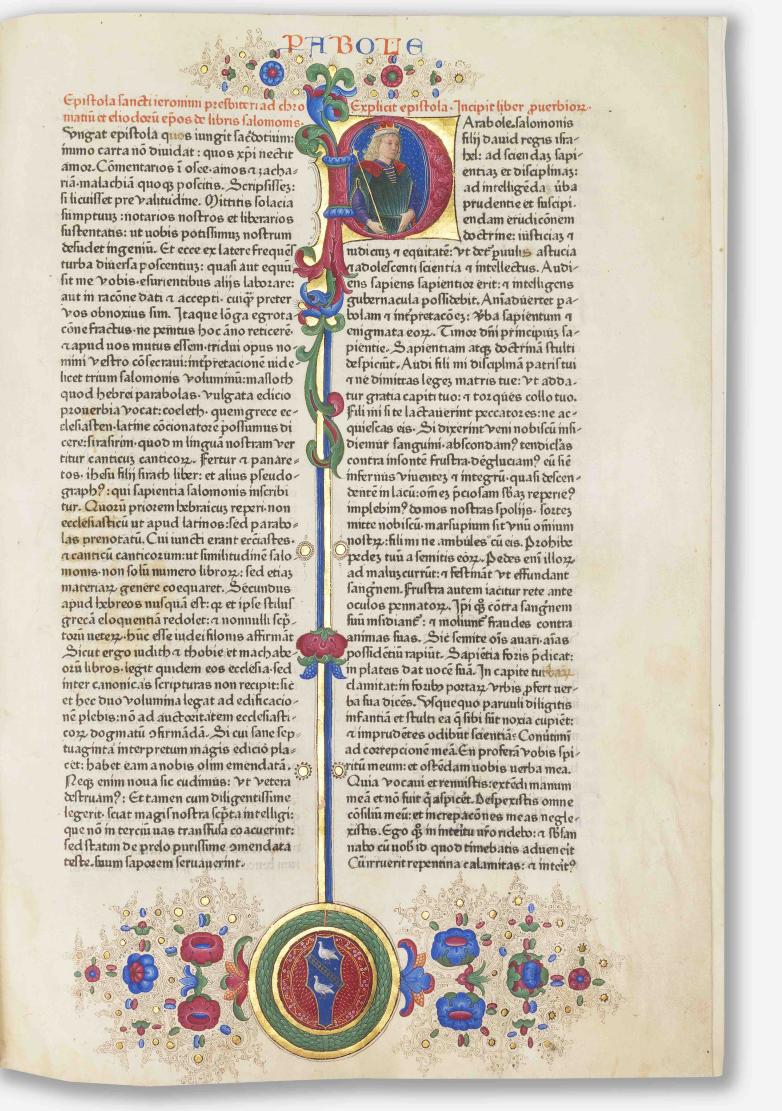 PABOLE
Epistola sancti ieronimi presbiteri ad chro
matiū et eliodorū ep̄os de libris salomonis.
Vngat epistola quos iungit sac̄dotium:
immo carta nō diuidat: quos xp̄i nectit
amor. Cōmentarios ī osee· amos ⁊ zacha-
riā· malachiā quoqꝫ poscitis. Scripsisseꝫ:
si licuisset pre valitudine. Mittitis solacia
sumptuuꝫ: notarios nostros et librarios
sustentatis: ut uobis potissimuꝫ nostrum
desudet ingeniū. Et ecce ex latere frequēs
turba diuersa poscentiuꝫ: quasi aut equū
sit me vobis· esurientibus alijs laborare:
aut in racōne dati ⁊ accepti· cuiqꝫ preter
vos obnoxius sim. Itaque lōga egrota
cōne fractus· ne penitus hoc āno reticerē·
⁊ apud uos mutus essem· tridui opus no-
mini vestro cōsecraui: int̄pretacionē uide
licet trium salomonis voluminū: masloth
quod hebrei parabolas· vulgata edicio
prouerbia vocat: coeleth· quem grece ec-
clesiasten· latine cōcionatorē possumus di
cere: sirasirim· quod in linguā nostram ver
titur canticuꝫ canticoꝝ. Fertur ⁊ panare-
tos· ihesu filij sirach liber: et alius pseudo-
graph⁹: qui sapientia salomonis inscribi
tur. Quorū priorem hebraicuꝫ reperi· non
ecclesiasticū ut apud latinos: sed parabo-
las prenotatū. Cui iuncti erant ecciastes·
⁊ canticū canticorum: ut similitudinē salo
monis· non solū numero libroꝝ: sed etiaꝫ
materiaꝝ genere coequaret. Secundus
apud hebreos nusquā est: qꝫ et ipse stilus
grecā eloquentiā redolet: ⁊ nonnulli scp̄-
torū ueteꝝ· hūc esse iudei filonis affirmāt
Sicut ergo iudith ⁊ thobie· et machabe-
orū libros· legit quidem eos ecclesia· sed
inter canonicas scripturas non recipit: sic
et hec duo volumina legat ad edificacio-
nē plebis: nō ad auctoritatem ecclesiasti-
coꝝ dogmatū ꝯfirmādā. Si cui sane sep-
tuaginta interpretum magis edicio pla-
cet: habet eam a nobis olim emendatā.
Neqꝫ enim noua sic cudimus: vt vetera
destruam⁹: Et tamen cum diligentissime
legerit· sciat magis nostra scp̄ta intelligi:
que nō in terciū uas transfusa coacuerint:
sed statim de prelo purissime ꝯmendata
teste· suum saporem seruauerint.
Explicit epistola· Incipit liber ꝓuerbioꝝ·
Arabole· salomonis
filij dauid regis isra-
hel: ad sciendaꝫ sapi-
entiaꝫ et disciplinaꝫ:
ad intelligēda v̄ba
prudentie et suscipi-
endam erudicōnem
doctrine: iusticiaꝫ ⁊
iudiciuꝫ ⁊ equitatē: vt det̄ ꝑuulis astucia
⁊ adolescenti scientia ⁊ intellectus. Audi-
ens sapiens sapientior erit: ⁊ intelligens
gubernacula possidebit. Aīaduertet pa-
bolam ⁊ int̄pretacōeꝫ: v̄ba sapientum ⁊
enigmata eoꝝ. Timor dn̄i principiuꝫ sa-
pientie. Sapientiam atqꝫ doctrinā stulti
despiciūt. Audi fili mi disciplinā patris tui
⁊ ne dimittas legeꝫ matris tue: vt adda-
tur gratia capiti tuo: ⁊ torques collo tuo.
Fili mi si te lactauerint peccatores: ne ac-
quiescas eis. Si dixerint veni nobiscū insi-
diemur sanguini· abscondam⁹ tendiclas
contra insontē frustra· deglutiam⁹ eū sic̄
infernus viuenteꝫ ⁊ integrū· quasi descen-
dentē in lacū: om̄eꝫ p̄ciosam sbāꝫ reperie⁹
implebim⁹ domos nostras spolijs· sortez
mitte nobiscū· marsupium sit vnū omnium
nostꝝ: fili mi ne ambules cū eis. Prohibe
pedeꝫ tuū a semitis eoꝝ. Pedes eni illoꝝ
ad maluꝫ currūt: ⁊ festināt vt effundant
sang̈nem. Frustra autem iacitur rete ante
oculos pennatoꝝ. Ip̄i qꝫ cōtra sang̈nem
suū insidiant᷑: ⁊ moliunt᷑ fraudes contra
animas suas. Sic semite oīs auari· aīas
possidētiū rapiūt. Sapiētia foris p̄dicat:
in plateis dat uocē suā. In capite turbaꝝ
clamitat: in foribꝫ portaꝝ vrbis ꝓfert ver-
ba sua dicēs. Vsquequo paruuli diligitis
infantiā et stulti ea q̄ sibi sūt noxia cupiēt:
⁊ imprudētes odibūt scientiā: Conūtimī
ad correpcionē meā. En proferā vobis spi-
ritū meum: et ostēdam uobis uerba mea.
Quia vocaui et rennistis: extēdi manum
meā et nō fuit q̄ aspicēt. Despexistis omne
cōsiliū meū: et increpacōnes meas negle-
xistis. Ego qꝫ in inteītu vr̄o ridebo: ⁊ sb̄san
nabo cū uob̄ id quod timebatis aduenēit
Cū irruerit repentina calamitas: ⁊ inteīt⁹